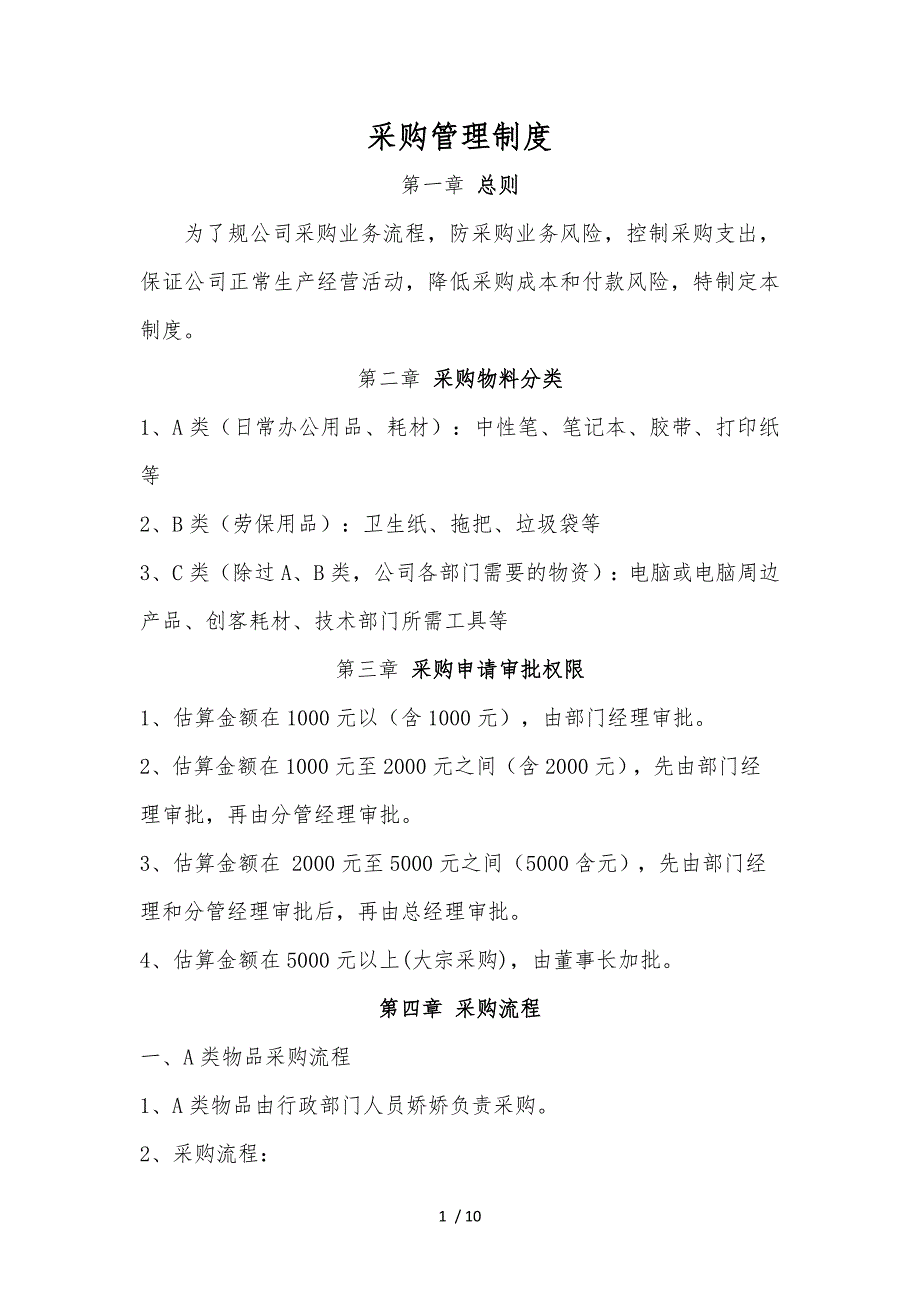 采购管理制度
第一章 总则
为了规公司采购业务流程，防采购业务风险，控制采购支出，
保证公司正常生产经营活动，降低采购成本和付款风险，特制定本
制度。
第二章 采购物料分类
1、A类（日常办公用品、耗材）：中性笔、笔记本、胶带、打印纸
等
2、B类（劳保用品）：卫生纸、拖把、垃圾袋等
3、C类（除过A、B类，公司各部门需要的物资）：电脑或电脑周边
产品、创客耗材、技术部门所需工具等
第三章 采购申请审批权限
1、估算金额在1000元以（含1000元），由部门经理审批。
2、估算金额在1000元至2000元之间（含2000元），先由部门经
理审批，再由分管经理审批。
3、估算金额在 2000元至5000元之间（5000含元），先由部门经
理和分管经理审批后，再由总经理审批。
4、估算金额在5000元以上(大宗采购)，由董事长加批。
第四章 采购流程
一、A类物品采购流程
1、A类物品由行政部门人员娇娇负责采购。
2、采购流程：
1 / 10